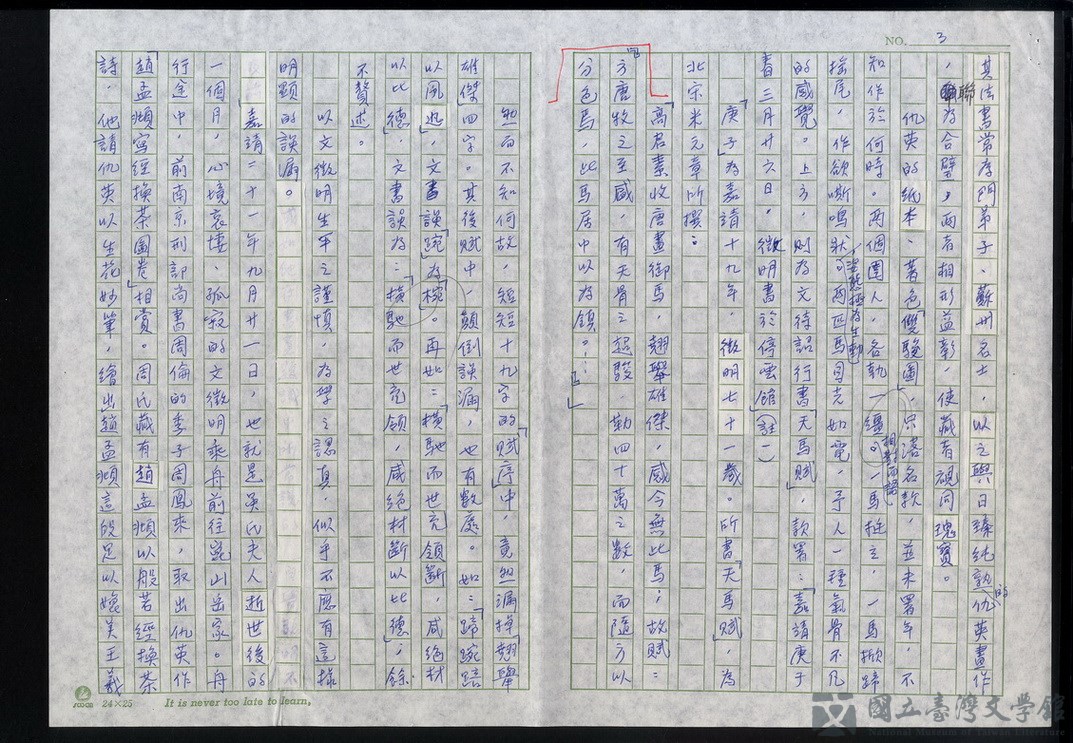 NO. 3
其法書常為門弟子、蘇州名士，以之與日臻純熟的仇英畫作
，聯為合璧，兩者相形益彰，使藏者視同瑰寶。
仇英的紙本、著色「雙駿圖」，只落名款，並未署年，不
知作於何時。兩個圉人，各執一繮相對而語，一馬挺立，一馬掀蹄
搖尾，作欲嘶鳴狀，姿態極為生動。兩匹馬目光如電，予人一種氣骨不凡
的感覺。上方，則為文待詔行書「天馬賦」，款署：「嘉靖庚子
春三月廿六日，徵明書於停雲館」（註一）
「庚子」為嘉靖十九年，徵明七十一歲。所書「天馬賦」，為
北宋米元章所撰：
「高君素收唐畫御馬，翹舉雄傑，感今無此馬，故賦：
方唐牧之至盛，有天骨之超駿，勒四十萬之數，而隨方以
分色焉，此馬居中以為鎮。…」
然而不知何故，短短十九字的「賦」序中，竟然漏掉「翹舉
雄傑」四字。其後賦中，顛倒誤漏，也有數處。如：「蹄踠踣
以風迅」，文書誤「踠」為「椀」。再如：「橫馳而世充領斷，咸絕材
以比德」，文書誤為：「橫馳而世充領，咸絕材斷以比德」；餘
不贅述。
以文徵明生平之謹慎，為學之認真，似乎不應有這樣
明顯的誤漏。
嘉靖二十一年九月廿一日，也就是吳氏夫人逝世後的
一個月，心境哀悽、孤寂的文徵明乘舟前往崑山岳家。舟
行途中，前南京刑部尚書周倫的季子周鳳來，取出仇英作
「趙孟頫寫經換茶圖卷」相賞。周氏藏有趙孟頫以般若經換茶
詩，他請仇英以生花妙筆，繪出趙孟頫這段足以媲美王羲
24×25
It is never too late to learn,
國立臺灣文學館
National Museum of Taiwan Literature